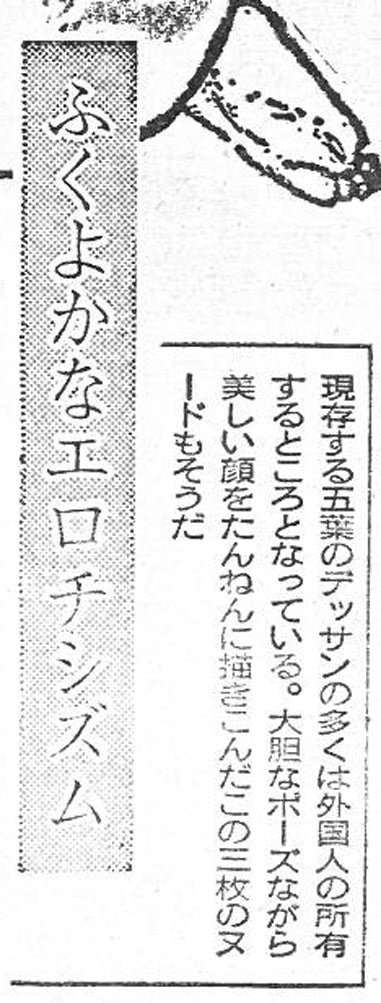 現存する五葉のデッサンの多くは外国人の所有
するところとなっている。大胆なポーズながら
美しい顔をたんねんに描きこんだこの三枚のヌ
ードもそうだ
ふくよかなエロチシズム